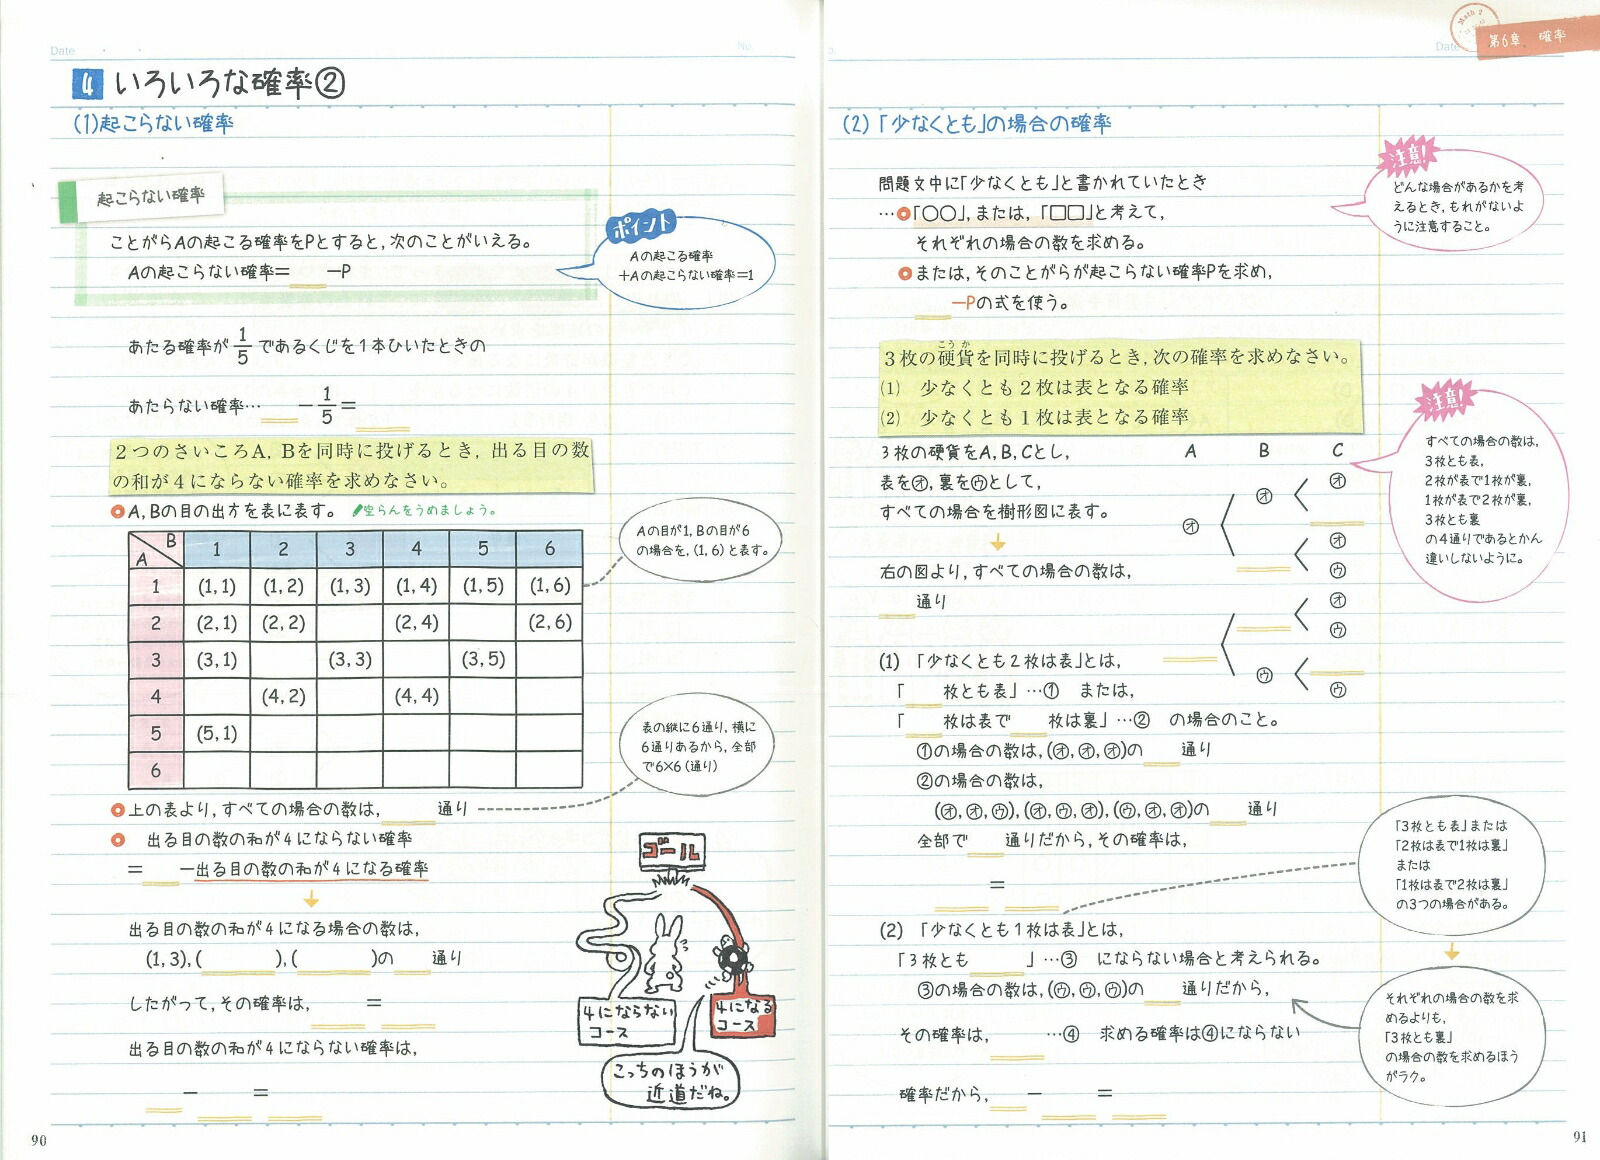 Date
No.
4 いろいろな確率②
(1)起こらない確率
起こらない確率
ことがらAの起こる確率をPとすると,次のことがいえる。
Aの起こらない確率= −P
ポイント
Aの起こる確率
+Aの起こらない確率=1
あたる確率が1/5であるくじを1本ひいたときの
あたらない確率… −1/5=
2つのさいころA, Bを同時に投げるとき, 出る目の数
の和が4にならない確率を求めなさい。
A,Bの目の出方を表に表す。 空らんをうめましょう。
A B 1 2 3 4 5 6
1 (1,1) (1,2) (1,3) (1,4) (1,5) (1,6)
2 (2,1) (2,2) (2,4) (2,6)
3 (3,1) (3,3) (3,5)
4 (4,2) (4,4)
5 (5,1)
6
Aの目が1,Bの目が6
の場合を,(1,6)と表す。
表の縦に6通り,横に
6通りあるから,全部
で6×6(通り)
上の表より,すべての場合の数は, 通り
出る目の数の和が4にならない確率
= −出る目の数の和が4になる確率
出る目の数の和が4になる場合の数は,
(1,3),( ),( )の 通り
したがって,その確率は, =
出る目の数の和が4にならない確率は,
− =
ゴール
4にならない
コース
4になる
コース
こっちのほうが
近道だね。
90
Date
Math 2
第6章 確率
(2)「少なくとも」の場合の確率
問題文中に「少なくとも」と書かれていたとき
…「○○」,または,「□□」と考えて,
それぞれの場合の数を求める。
または,そのことがらが起こらない確率Pを求め,
−Pの式を使う。
注意!
どんな場合があるかを考
えるとき,もれがないよ
うに注意すること。
こう か
3枚の硬貨を同時に投げるとき,次の確率を求めなさい。
(1) 少なくとも2枚は表となる確率
(2) 少なくとも1枚は表となる確率
3枚の硬貨をA,B,Cとし,
表を㋔,裏を㋒として,
すべての場合を樹形図に表す。
右の図より,すべての場合の数は,
通り
A B C
㋔
㋔
㋔
㋔
㋒
㋔
㋒
㋒
㋒
注意!
すべての場合の数は,
3枚とも表,
2枚が表で1枚が裏,
1枚が表で2枚が裏,
3枚とも裏
の4通りであるとかん
違いしないように。
(1) 「少なくとも2枚は表」とは,
「 枚とも表」…① または,
「 枚は表で 枚は裏」…② の場合のこと。
①の場合の数は,(㋔,㋔,㋔)の 通り
②の場合の数は,
(㋔,㋔,㋒),(㋔,㋒,㋔),(㋒,㋔,㋔)の 通り
全部で 通りだから,その確率は,
=
(2) 「少なくとも1枚は表」とは,
「3枚とも 」…③ にならない場合と考えられる。
③の場合の数は,(㋒,㋒,㋒)の 通りだから,
その確率は, …④ 求める確率は④にならない
確率だから, − =
「3枚とも表」または
「2枚は表で1枚は裏」
または
「1枚は表で2枚は裏」
の3つの場合がある。
それぞれの場合の数を求
めるよりも,
「3枚とも裏」
の場合の数を求めるほう
がラク。
91